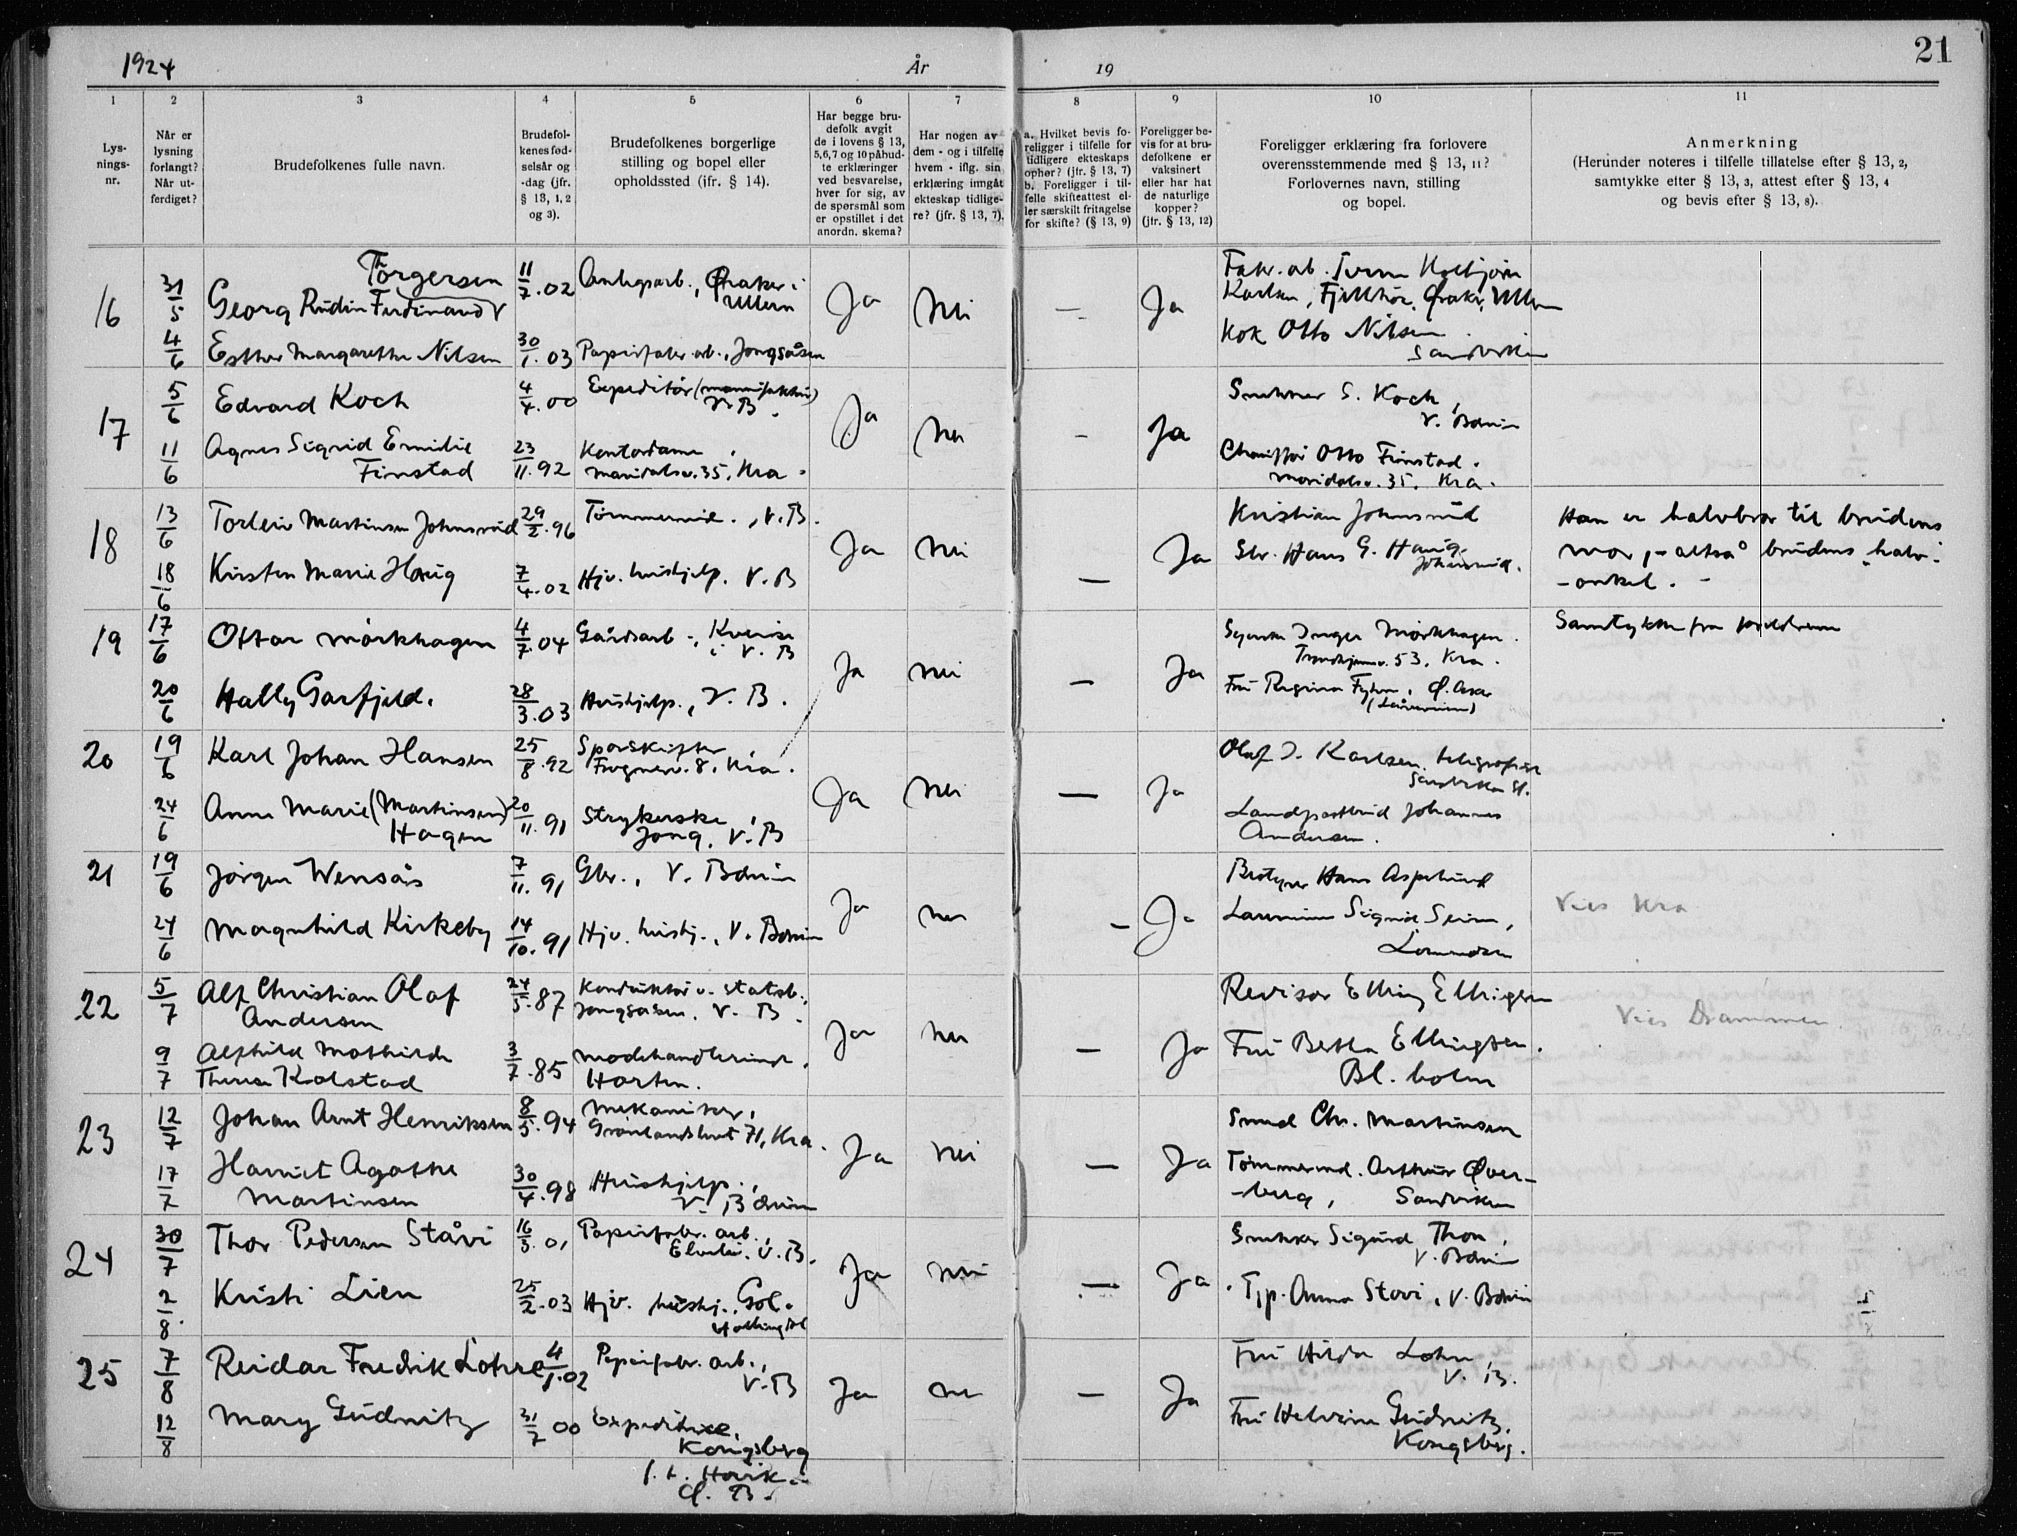 1924 År 19 21
1 2 3 4 5 6 7 8 9 10 11
Lys-
nings-
nr.
Når er
lysning
forlangt?
Når ut-
ferdiget?
Brudefolkenes fulle navn.
Brudefol-
kenes fød-
selsår og
-dag (jfr.
§ 13, 1, 2
og 3).
Brudefolkenes borgerlige
stilling og bopel eller
opholdssted (ifr. § 14).
Har begge bru-
defolk avgit
de i lovens § 13,
5,6,7 og 10 påbud-
te erklæringer
ved besvarelse,
hver for sig, av
de spørsmål som
er opstillet i det
anordn. skema?
Har nogen av
dem - og i tilfelle
hvem - iflg. sin
erklæring imgåt
ekteskap tidlige-
re? (jfr. § 13, 7).
a. Hvilket bevis fo-
religger i tilfelle for
tidligere ekteskaps
ophør? (jfr. § 13, 7)
b. Foreligger i til-
felle skifteattest el-
ler særskilt fritagelse
for skifte? (§ 13, 9)
Foreligger be-
vis for at bru-
defolkene er
vaksinert
eller har hat
de naturlige
kopper?
(jfr. § 13, 12)
Foreligger erklæring fra forlovere
overensstemmende med § 13, 11?
Forlovernes navn, stilling
og bopel.
Anmerkning
(Herunder noteres i tilfelle tillatelse efter § 13, 2,
samtykke efter § 13, 3, attest efter § 13, 4
og bevis efter § 13, 8).
16 31/5 Georg Rudin Ferdinand Thorgersen 11/7.02 Anlegsarb., Øraker i Ullern Ja Nei — Ja
Karlsen, Fjellhöi, Øraker, Ullern
4/6 Esther Margarethe Nilsen 30/1.03 Papirfabr. arb., Jongsåsen
Kok Otto Nilsen
Sandviken
17 5/6 Edvard Koch 4/4.00 Expeditør (manufaktur) V.B. Ja Nei — Ja
S. Koch,
V. Bærum
11/6 Agnes Sigrid Emilie
Finstad 23/11.92 Kontordame,
Maridalsv. 35, Kra.
Chauffør Otto Finstad.
Maridalsv. 35. Kra.
18 13/6 Torleiv Martinsen Johnsrud 29/2.96 Tømmermd., V.B. Ja Nei — Ja
Kristian Johnsrud
Han er halvbror til brudens
18/6 Kirsten Marie Haug 7/4.02 Hjv. hushjelp. V.B
Gbr. Hans G. Haug.
Johnsrud.
mor, - altså brudens halv-
-onkel. -
19 17/6 Ottar Mörkhagen 4/7.04 Gårdsarb.,
i V.B Ja Nei — Ja
Inger Mörkhagen.
Trondhjemsv. 53, Kra.
Samtykke fra foreldrene
20/6 Hally Garfjeld. 28/3.03 Hushjelp., V.B.
Fru Regina
20 19/6 Karl Johan Hansen 25/8.92 Sporskifter,
Frognerv. 8, Kra. Ja Nei — Ja
Olaf J. Karlsen, telegrafist
Sandvika St.
24/6 Anna Marie (Martinsen)
Hagen 20/11.91 Strykerske,
Jong, V.B
Landpostbud Johannes
Andersen.
21 19/6 Jörgen Wensås 7/11.91 Gbr., V. Bærum Ja Nei — Ja
Hans Aspelund
Vies Kra
24/6 Magnhild Kirkeby 14/10.91 Hjv. hushj., V. Bærum
Lærerinne Sigrid Seim,
Lommedalen
22 5/7 Alf Christian Olaf
Andersen 24/5.87 Konduktør v. statsb.,
Jongsåsen, V.B. Ja Nei — Ja
Revisor Elling Ellingsen
Vies Drammen
9/7 Alfhild Mathilde
Therese Kolstad 3/7.85 Modehandlerinde,
Horten.
Fru Bertha Ellingsen.
Bl. holm
23 12/7 Johan Arnt Henriksen 8/5.94 Mekaniker,
Grönlandsleret 71, Kra. Ja Nei — Ja
Smed Chr. Martinsen
17/7 Harriet Agathe
Martinsen 30/4.98 Hushjelp.,
V. Bærum
Tömmermd. Arthur Över-
-berg, Sandviken
24 30/7 Thor Pedersen Ståvi 16/3.01 Papirfabr. arb.,
V.B. Ja Nei — Ja
Snekker Sigurd Thon,
V. Bærum
2/8 Kristi Lien 25/2.03 Hjv. hushj., Gol.
Hallingdal
Tjp. Anna Stovi, V. Bærum
25 7/8 Reidar Fredrik Lohre 4/1.02 Papirfabr. arb.,
V.B Ja Nei — Ja
Fru Hilda Lohre,
V. B.
12/8 Mary Gudnitz 31/7 00 Expeditrice,
Kongsberg
f. t. Hövik i
Ø. B.
Fru Helvine Gudnitz,
Kongsberg.